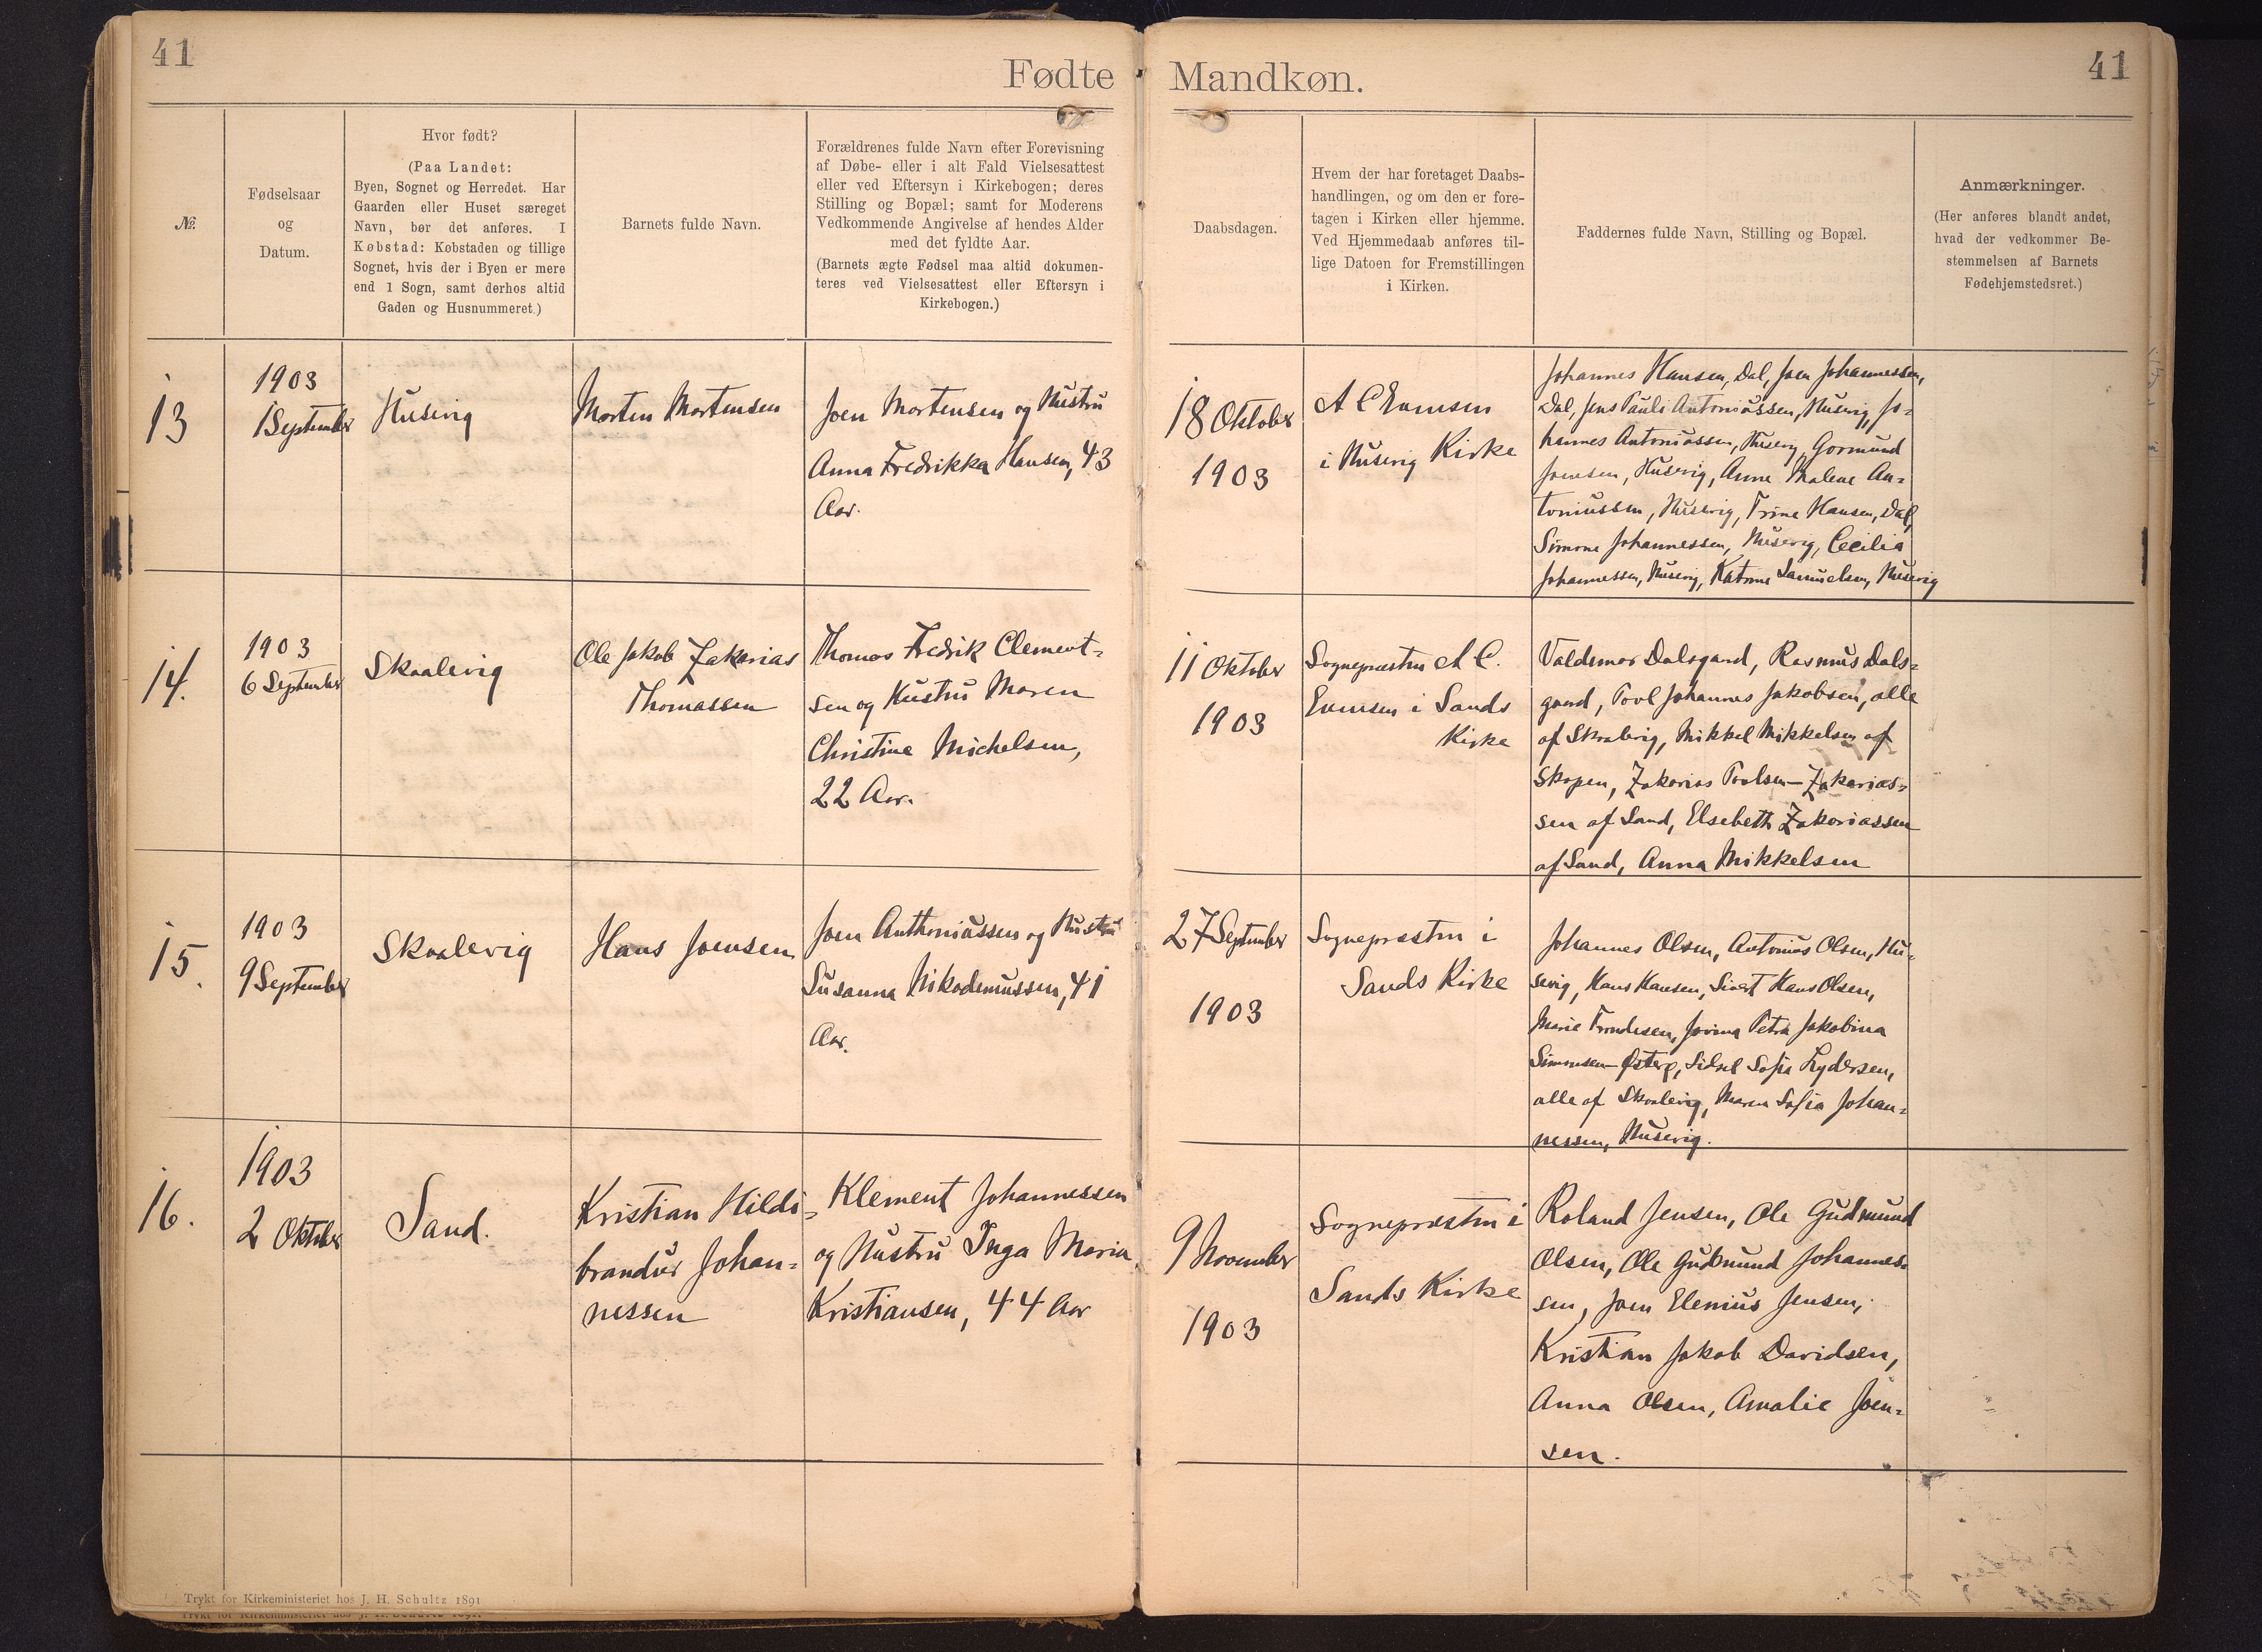 41
Fødte
Mandkøn.
41
№
Fødselsaar
og
Datum.
Hvor født?
(Paa Landet:
Byen, Sognet og Herredet. Har
Gaarden eller Huset særeget
Navn, bør det anføres. I
Købstad: Købstaden og tillige
Sognet, hvis der i Byen er mere
end 1 Sogn, samt derhos altid
Gaden og Husnummeret.)
Barnets fulde Navn.
Forældrenes fulde Navn efter Forevisning
af Døbe- eller i alt Fald Vielsesattest
eller ved Eftersyn i Kirkebogen; deres
Stilling og Bopæl; samt for Moderens
Vedkommende Angivelse af hendes Alder
med det fyldte Aar.
(Barnets ægte Fødsel maa altid dokumen-
teres ved Vielsesattest eller Eftersyn i
Kirkebogen.)
Daabsdagen.
Hvem der har foretaget Daabs-
handlingen, og om den er fore-
tagen i Kirken eller hjemme.
Ved Hjemmedaab anføres til-
lige Datoen for Fremstillingen
i Kirken.
Faddernes fulde Navn, Stilling og Bopæl.
Anmærkninger.
(Her anføres blandt andet,
hvad der vedkommer Be-
stemmelsen af Barnets
Fødehjemstedsret.)
13
1903
1 September
Husevig
Morten Mortensen
Joen Mortensen og Hustru
Anna Fredrikka Hansen, 43
Aar.
18 Oktober
1903
A C Evensen
i Husevig Kirke
Johannes Hansen, Dal, Joen Johannessen,
Dal, Jens Pauli Antoniussen, Husevig, Jo-
hannes Antoniussen, Husevig, Gormund
Joensen, Husevig, Anne Malene An-
toniussen, Husevig, Trine Hansen, Dal,
Simone Johannessen, Husevig, Cecilia
Johannessen, Husevig, Katrine Samuelsen, Husevig
14.
1903
6 September
Skaalevig
Ole Jakob Zakarias
Thomassen
Thomas Fredrik Clement-
sen og Hustru Maren
Christine Michelsen,
22 Aar.
11 Oktober
1903
Sognepræsten A C.
Evensen i Sands
Kirke
Valdemar Dalsgaard, Rasmus Dals-
gaard, Poul Johannes Jakobsen, alle
af Skaalevig, Mikkel Mikkelsen af
Skopen, Zakarias Poulsen-Zakarias-
sen af Sand, Elsebeth Zakariassen
af Sand, Anna Mikkelsen
15.
1903
9 September
Skaalevig
Hans Joensen
Joen Anthoniussen og Hustru
Susanna Nikodemussen, 41
Aar.
27 September
1903
Sognepræsten i
Sands Kirke
Johannes Olsen, Antonius Olsen, Hu-
sevig, Hans Hansen, Sivert Hans Olsen,
Marie Trondesen, Petra Jakobina
Simonsen Sidsel Sofia Lydersen,
alle af Skaalevig, Maren Sofia Johan-
nessen, Husevig.
16.
1903
2 Oktober
Sand.
Kristian Hildi-
brandur Johan-
nessen
Klement Johannessen
og Hustru Inga Maria
Kristiansen, 44 Aar
9 November
1903
Sognepræsten i
Sands Kirke
Roland Jensen, Ole Gudmund
Olsen, Ole Gudmund Johannes-
sen, Joen Elenius Jensen,
Kristian Jakob Davidsen,
Anna Olsen, Amalie Joen-
sen.
Trykt for Kirkeministeriet hos J. H. Schultz 1891